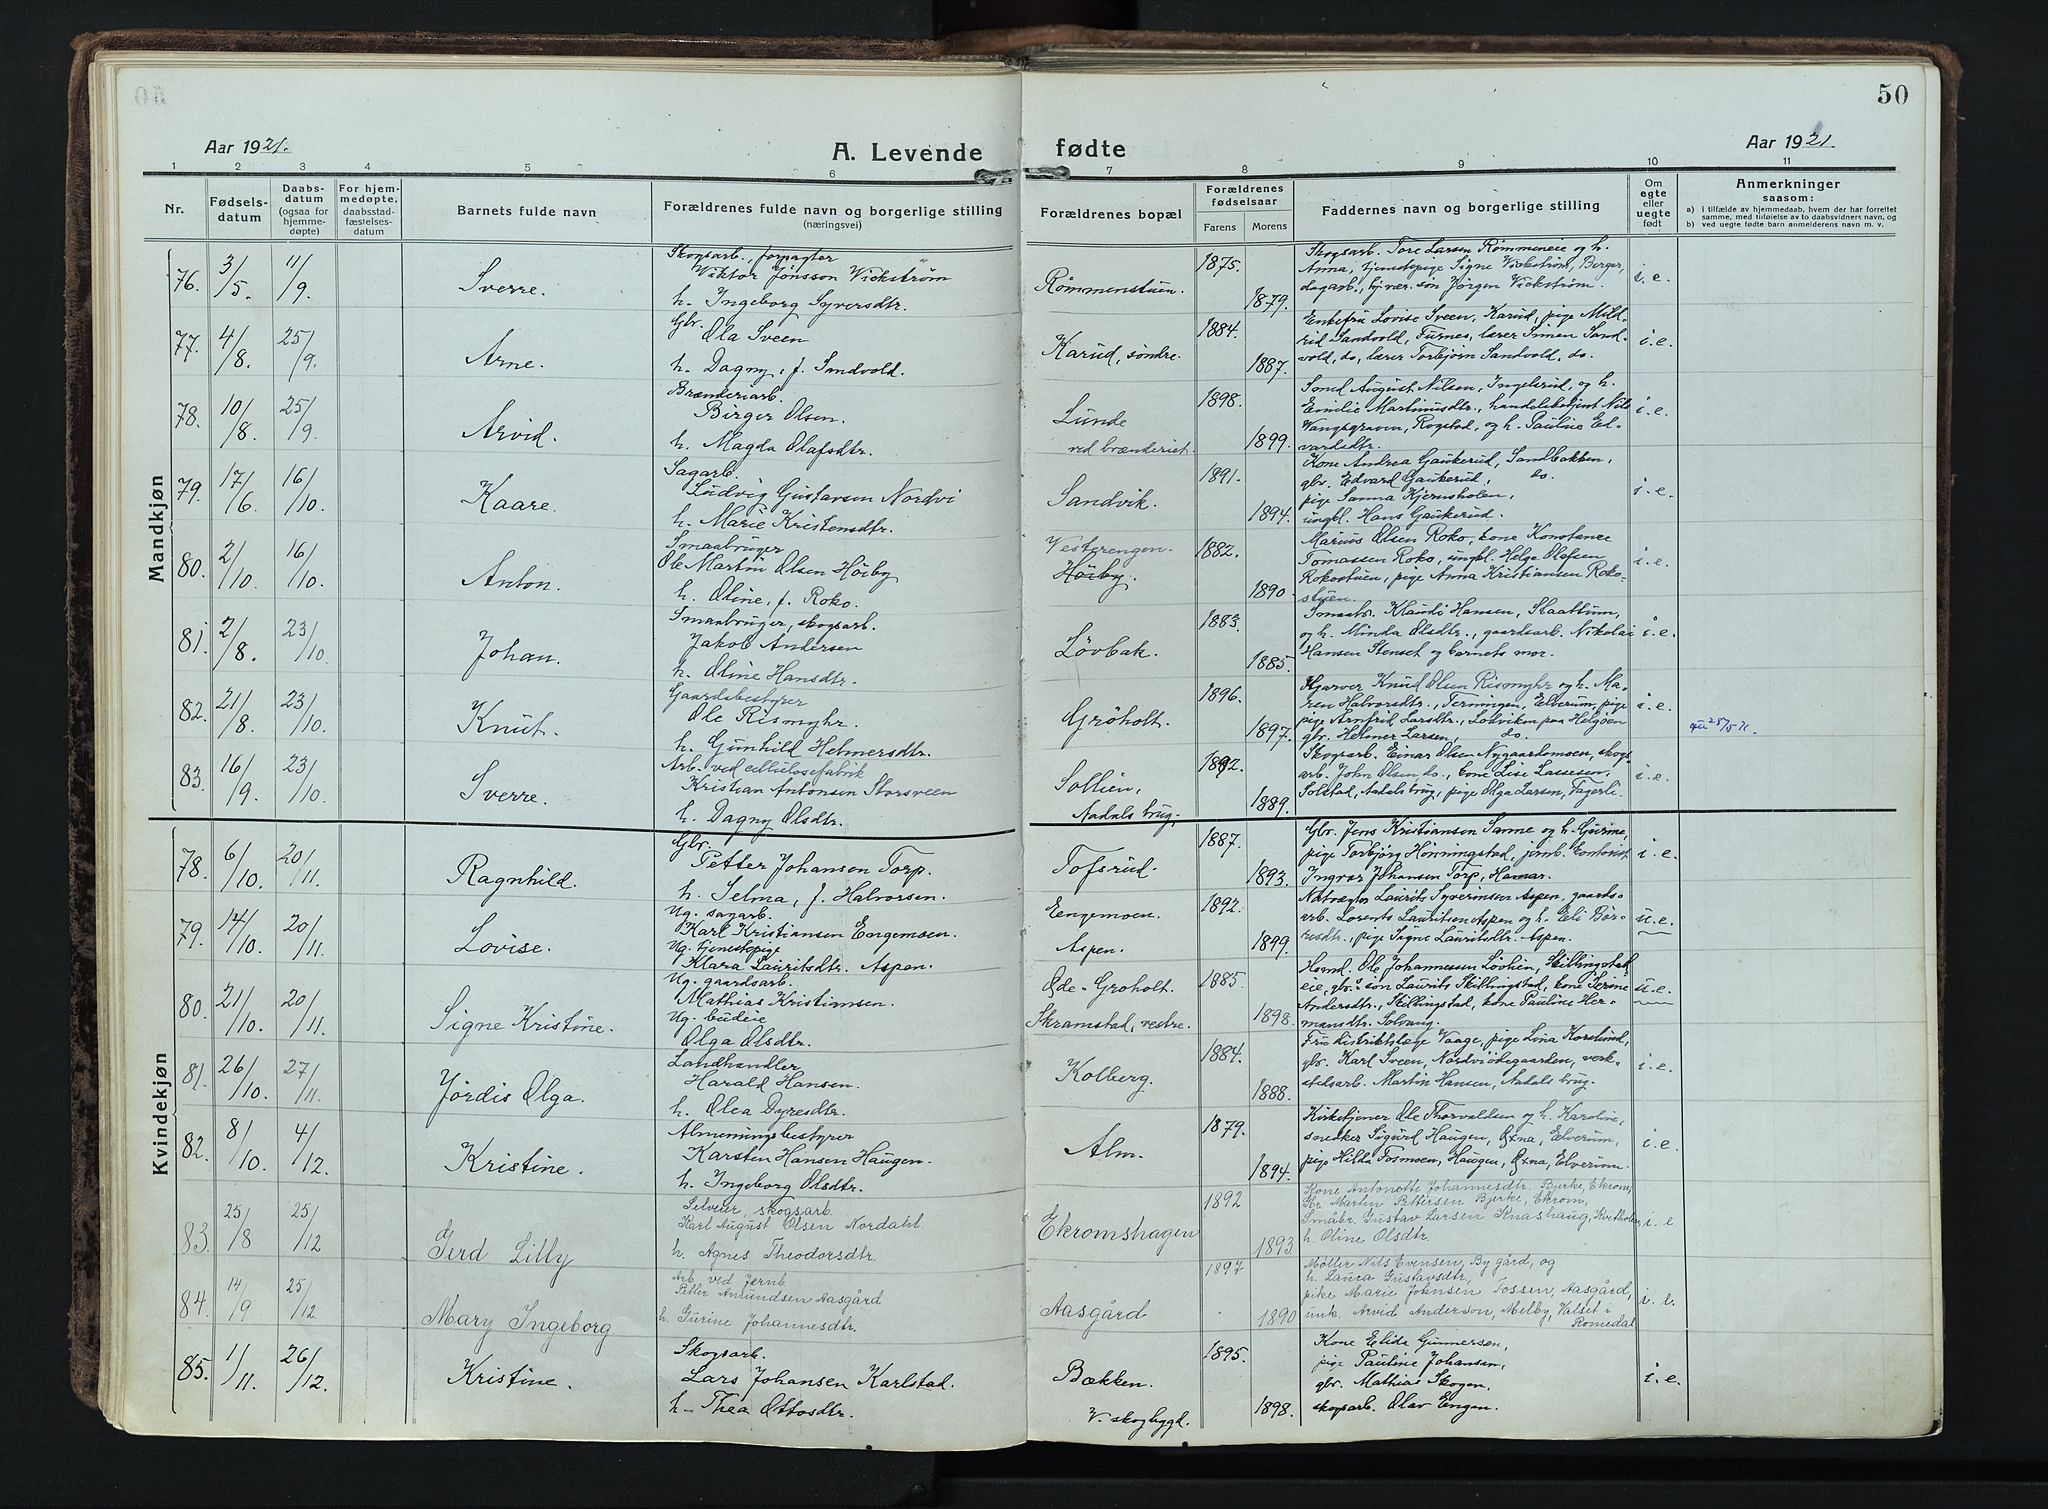 50
Aar 1921.
A. Levende fødte
Aar 1921
1 2 3 4 5 6 7 8 9 10 11
Nr.
Fødsels-
datum
Daabs-
datum
(ogsaa for
hjemme-
døpte)
For hjem-
medøpte,
daabsstad-
fæstelses-
datum
Barnets fulde navn
Forældrenes fulde navn og borgerlige stilling
(næringsvei)
Forældrenes bopæl
Forældrenes
fødselsaar
Farens
Morens
Faddernes navn og borgerlige stilling
Om
egte
eller
uegte
født
Anmerkninger
saasom:
a) I tilfælde av hjemmedaab, hvem der har forrettet
samme, med tilføielse av to daabsvidners navn, og
b) ved uegte fødte barn anmelderens navn m. v.
Mandkjøn
76. 3/5. 11/9. Sverre.
Skogsarb., forpagter
Viktor Jønsson Vickstrøm
h. Ingeborg Syversdtr.
Rømmenstuen.
1875.
1879.
Skogsarb. Tore Larsen Rømmeneie og h.
Anna, tjenestepige Signe Vickstrøm, Berger,
dagarb., hjvær. søn Jørgen Vickstrøm.
i. e.
77. 4/8. 25/9. Arne.
Gbr.
Ola Sveen
h. Dagny, f. Sandvold.
Karud, søndre.
1884.
1887.
Enkefru Lovise Sveen, Karud, pige Mild-
rid Sandvold, Furnes, lærer Simen Sand-
vold, do, lærer Torbjørn Sandvold, do.
i. e.
78. 10/8. 25/9. Arvid.
Brænderiarb.
Birger Olsen.
h. Magda Olafsdtr.
Lunde
ved brænderiet.
1898.
1899.
Smed August Nilsen, Ingelsrud, og h.
Emilie Martinusdtr., handelsbetjent Nils
Vangsgraven, Rogstad, og h. Pauline Ed-
vardsdtr.
i. e.
79. 17/6. 16/10. Kaare.
Sagarb.
Ludvig Gustavsen Nordvi
h. Marie Kristensdtr.
Sandvik.
1891.
1894.
Kone Andrea Gaukerud, Sandbakken,
gbr. Edvard Gaukerud, do.
pige Sanna Kjernsholen,
ungkl. Hans Gaukerud.
i. e.
80. 2/10. 16/10. Anton.
Smaabruger
Ole Martin Olsen Høiby
h. Oline, f. Roko.
Vesterengen.
Høiby.
1882.
1890.
Marius Olsen Roko, kone Konstance
Tomassen Roko, ungkl. Helge Olafsen
Rokostuen, pige Anna Kristiansen Roko-
stuen.
i. e.
81. 2/8. 23/10. Johan.
Smaabruger, skogsarb.
Jakob Andersen
h. Oline Hansdtr.
Løvbak.
1883.
1885.
Smaabr. Klaudi Hansen, Slaattum,
og h. Minda Olsdtr., gaardsarb. Nikolai
Hansen Stenset og barnets mor.
i. e.
82. 21/8. 23/10. Knut.
Gaardsbestyrer
Ole Rismyhr.
h. Gunhild Helmersdtr.
Grøholt.
1896.
1897.
Hgarver Knud Olsen Rismyhr og h. Ma-
ren Halvorsdtr., Terningen, Elverum, pige
pige Arnfrid Larsdtr., Løkviken paa Helgøen
gbr. Helmer Larsen, do.
i. e.
83. 16/9. 23/10. Sverre.
Arb. ved cellulosefabrik
Kristian Antonsen Storsveen
h. Dagny Olsdtr.
Sollien,
Aadals brug.
1892.
1889.
Skogsarb. Einar Olsen Nygaardsmoen, skogs-
arb. John Olsen do., kone Lise Lassesen,
Solstad, Aadals brug, pige Olga Larsen, Fagerli.
i. e.
Kvindekjøn
78. 6/10. 20/11. Ragnhild.
Gbr.
Petter Johansen Torp.
h. Selma, f. Halvorsen.
Tofsrud.
1887.
1893.
Gbr. Jens Kristiansen Sanne og h. Gurine,
pige Torbjørg Hønningstad, jernb. kontorist
Ingvar Johansen Torp, Hamar.
i. e.
79. 14/10. 20/11. Lovise.
Ug. sagarb.
Karl Kristiansen Engemoen.
Ug. tjenestepige
Klara Lauritsdtr. Aspen.
Engemoen.
Aspen.
1892.
1899.
Natvægter Laurits Syverinsen Aspen, gaards-
arb. Lorents Lauritsen Aspen og h. Eli Bør-
resdtr., pige Signe Lauritsdtr. Aspen.
u. e.
80. 21/10. 20/11. Signe Kristine.
Ug. gaardsarb.
Mathias Kristiansen.
Ug. budeie
Olga Olsdtr.
Øde-Grøholt.
Skramstad, vestre.
1885.
1898.
Hsmd. Ole Johannessen Løvlien, Skillingstad
eie, gbr.s søn Laurits Skillingstad, kone Serine
Andersdtr., Skillingstad, kone Pauline Her-
mansdtr. Solvang.
u. e.
81. 26/10. 27/11. Jørdis Olga.
Landhandler
Harald Hansen.
h. Olea Dyresdtr.
Kolberg.
1884.
1888.
Fru distriktslæge Vaage, pige Lina Korslund,
gbr. Karl Sveen, Nordviødegaarden, verk-
stedsarb. Martin Hansen, Aadals brug.
i. e.
82. 8/10. 4/12. Kristine.
Almenningsbestyrer
Karsten Hansen Haugen.
h. Ingeborg Olsdtr.
Alm.
1879.
1894.
Kirketjener Ole Thorvaldsen og h. Karoline,
snedker Sigurd Haugen, Øxna, Elverum,
pige Hilda Fosmoen, Haugen, Øxna, Elverum.
i. e.
83. 25/8 25/12 Gerd Lilly
Selveier, skogsarb.
Karl August Olsen Nordahl.
h. Agnes Theodorsdtr.
Ekromshagen
1892
1893
Kone Antonette Johannesdtr. Bjerke, Ekrom,
Gbr. Martin Pettersen Bjerke, Ekrom,
Småbr. Gustav Larsen Knashaug, Kvitholen,
h. Oline Olsdtr.
i. e.
84. 14/9 25/12 Mary Ingeborg
Arb. ved Jernb.
Petter Amundsen Aasgård
h. Gurine Johannesdtr.
Aasgård
1897
1890
Møller Nils Evensen, By gård, og
h. Laura Gustavsdtr,
pike Marie Johnsen Fossen, Aasgård,
unk. Arvid Anderson, Melby, Valset i
Romedal
i. e.
85. 1/11. 26/12. Kristine.
Skogsarb.
Lars Johansen Karlstad.
h. Thea Ottosdtr.
Bækken.
V. skogbygd.
1895.
1898.
Kone Elida Gunnersen,
pige Pauline Johansen,
gbr. Mathias Skogen,
skogsarb. Olav Engen.
i. e.